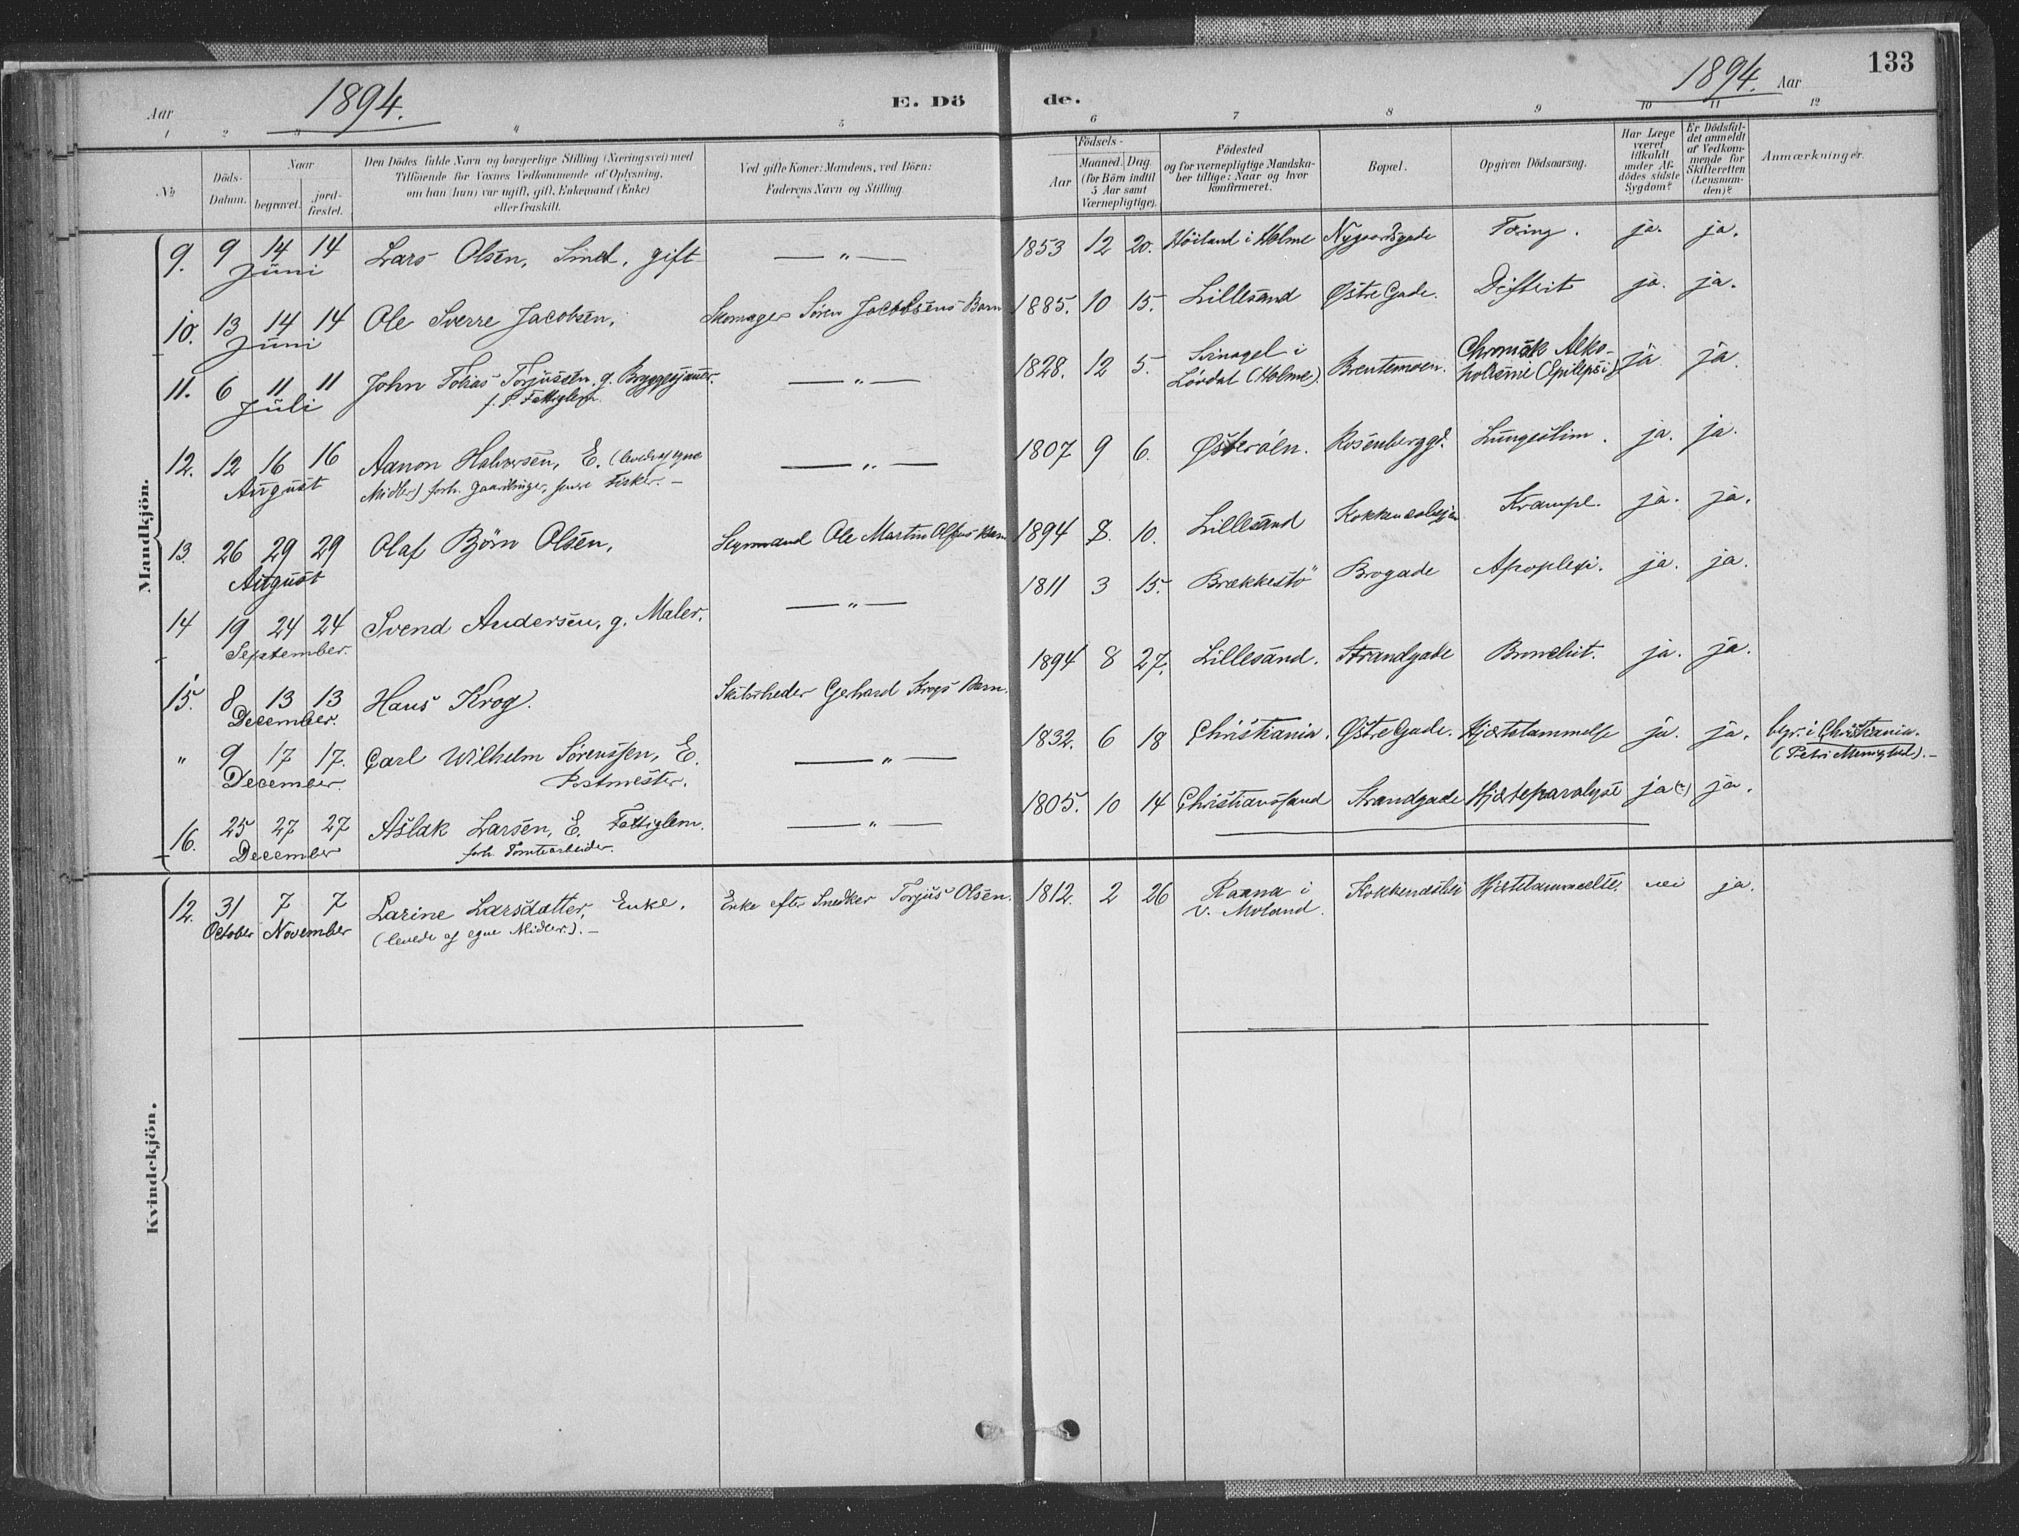 133
Aar 1894. E. Dö de. 1894. Aar
1 2 3 4 5 6 7 8 9 10 11 12
No
Döds-Datum.
Naar
begravet.
jord-fæstet.
Den Dödes fulde Navn og borgerlige Stilling (Næringsvei) med
Tilföiende for Voxnes Vedkommende af Oplysning,
om han (hun) var ugift, gift, Enkemand (Enke)
eller fraskilt.
Ved gifte Koner: Mandens, ved Börn:
Faderens Navn og Stilling
Födsels-
Aar
Maaned. Dag.
(for Börn indtil
5 Aar samt
Værnepligtige).
Födested
og for værnepligtige Mandska-
ber tillige: Naar og hvor
konfirmeret.
Bopæl.
Opgiven Dödsaarsag.
Har Læge
været
tilkaldt
under Af-
dödes sidste
Sygdom?
Er Dödsfal-
det anmeldt
af Vedkom-
mende for
Skifteretten
(Lensman-
den)?
Anmærkninger.
Mandkjön.
9. 9 14 14 Lars Olsen, Smed, gift — " — 1853 12 20. Höiland i Holme Nygaardsgade Tæring. ja. ja.
Juni
10. 13 14 14 Ole Sverre Jacobsen, Skomager Søren Jacobsens Barn 1885. 10 15. Lillesand Østre Gade. Difterit ja. ja.
Juni
11. 6 11 11 John Tobias Torjusen, g. Bryggesjauer. — " — 1828. 12 5. i Lövdal (Holme). Brentemoen. Chronisk Alko-
holisme (Epilepsi) ja ja.
Juli f. T. Fattiglem.
12. 12 16 16 Aanon Halvorsen, E. (levede af egne — " — 1807 9 6. Østeröen. Rosenberggd. Lungeslim. ja. ja.
August Midler) forh. Gaardbruger, senere Fisker. —
13. 26 29 29 Olaf Björn Olsen, Styrmand Ole Martin Olsens Barn 1894 8. 10. Lillesand Krampe. ja. ja.
August
14 19 24 24 Svend Andersen, g. Maler. — " — 1811 3 15. Brækkestö Brogade Apoplexi. ja. ja.
September.
15. 8 13 13 Hans Krog. Skibsrheder Gerhard Krogs Barn. 1894 8 27. Lillesand. Strandgade Bronchit. ja. ja.
December.
" 9 17 17. Carl Wilhelm Sørenssen, E. — " — 1832. 6 18 Christiania. Østre Gade. Hjertelammelse ja. ja. begr. i Christiania.
December. Postmester.
16. 25 27 27 Aslak Larsen, E. Fattiglem. — " — 1805. 10 14 Christianssand Strandgade Hjerteparalyse ja ja.
December forh. Tomtearbeider.
Kvindekjön.
12. 31 7 7 Larine Larsdatter, Enke. Enke efter Snedker Torjus Olsen. 1812. 2 26 Raana i
V. Moland. Hjertelammelse nei ja.
October November (levede af egne Midler). —